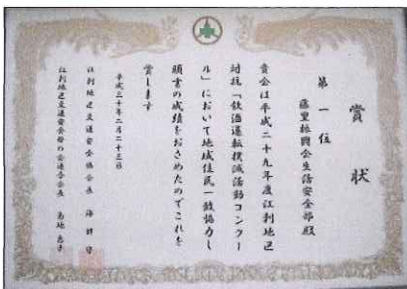 賞状
第一位
藤里振興会生活安全部殿
貴会は平成二十九年度江刺地区
対抗「飲酒運転撲滅活動コンクー
ル」において地域住民一致協力し
顕著の成績をおさめたのでこれを
賞します
平成三十年二月二十三日
江刺地区交通安全協会長
江刺地区交通安全母の会連合会長 菊地恵子